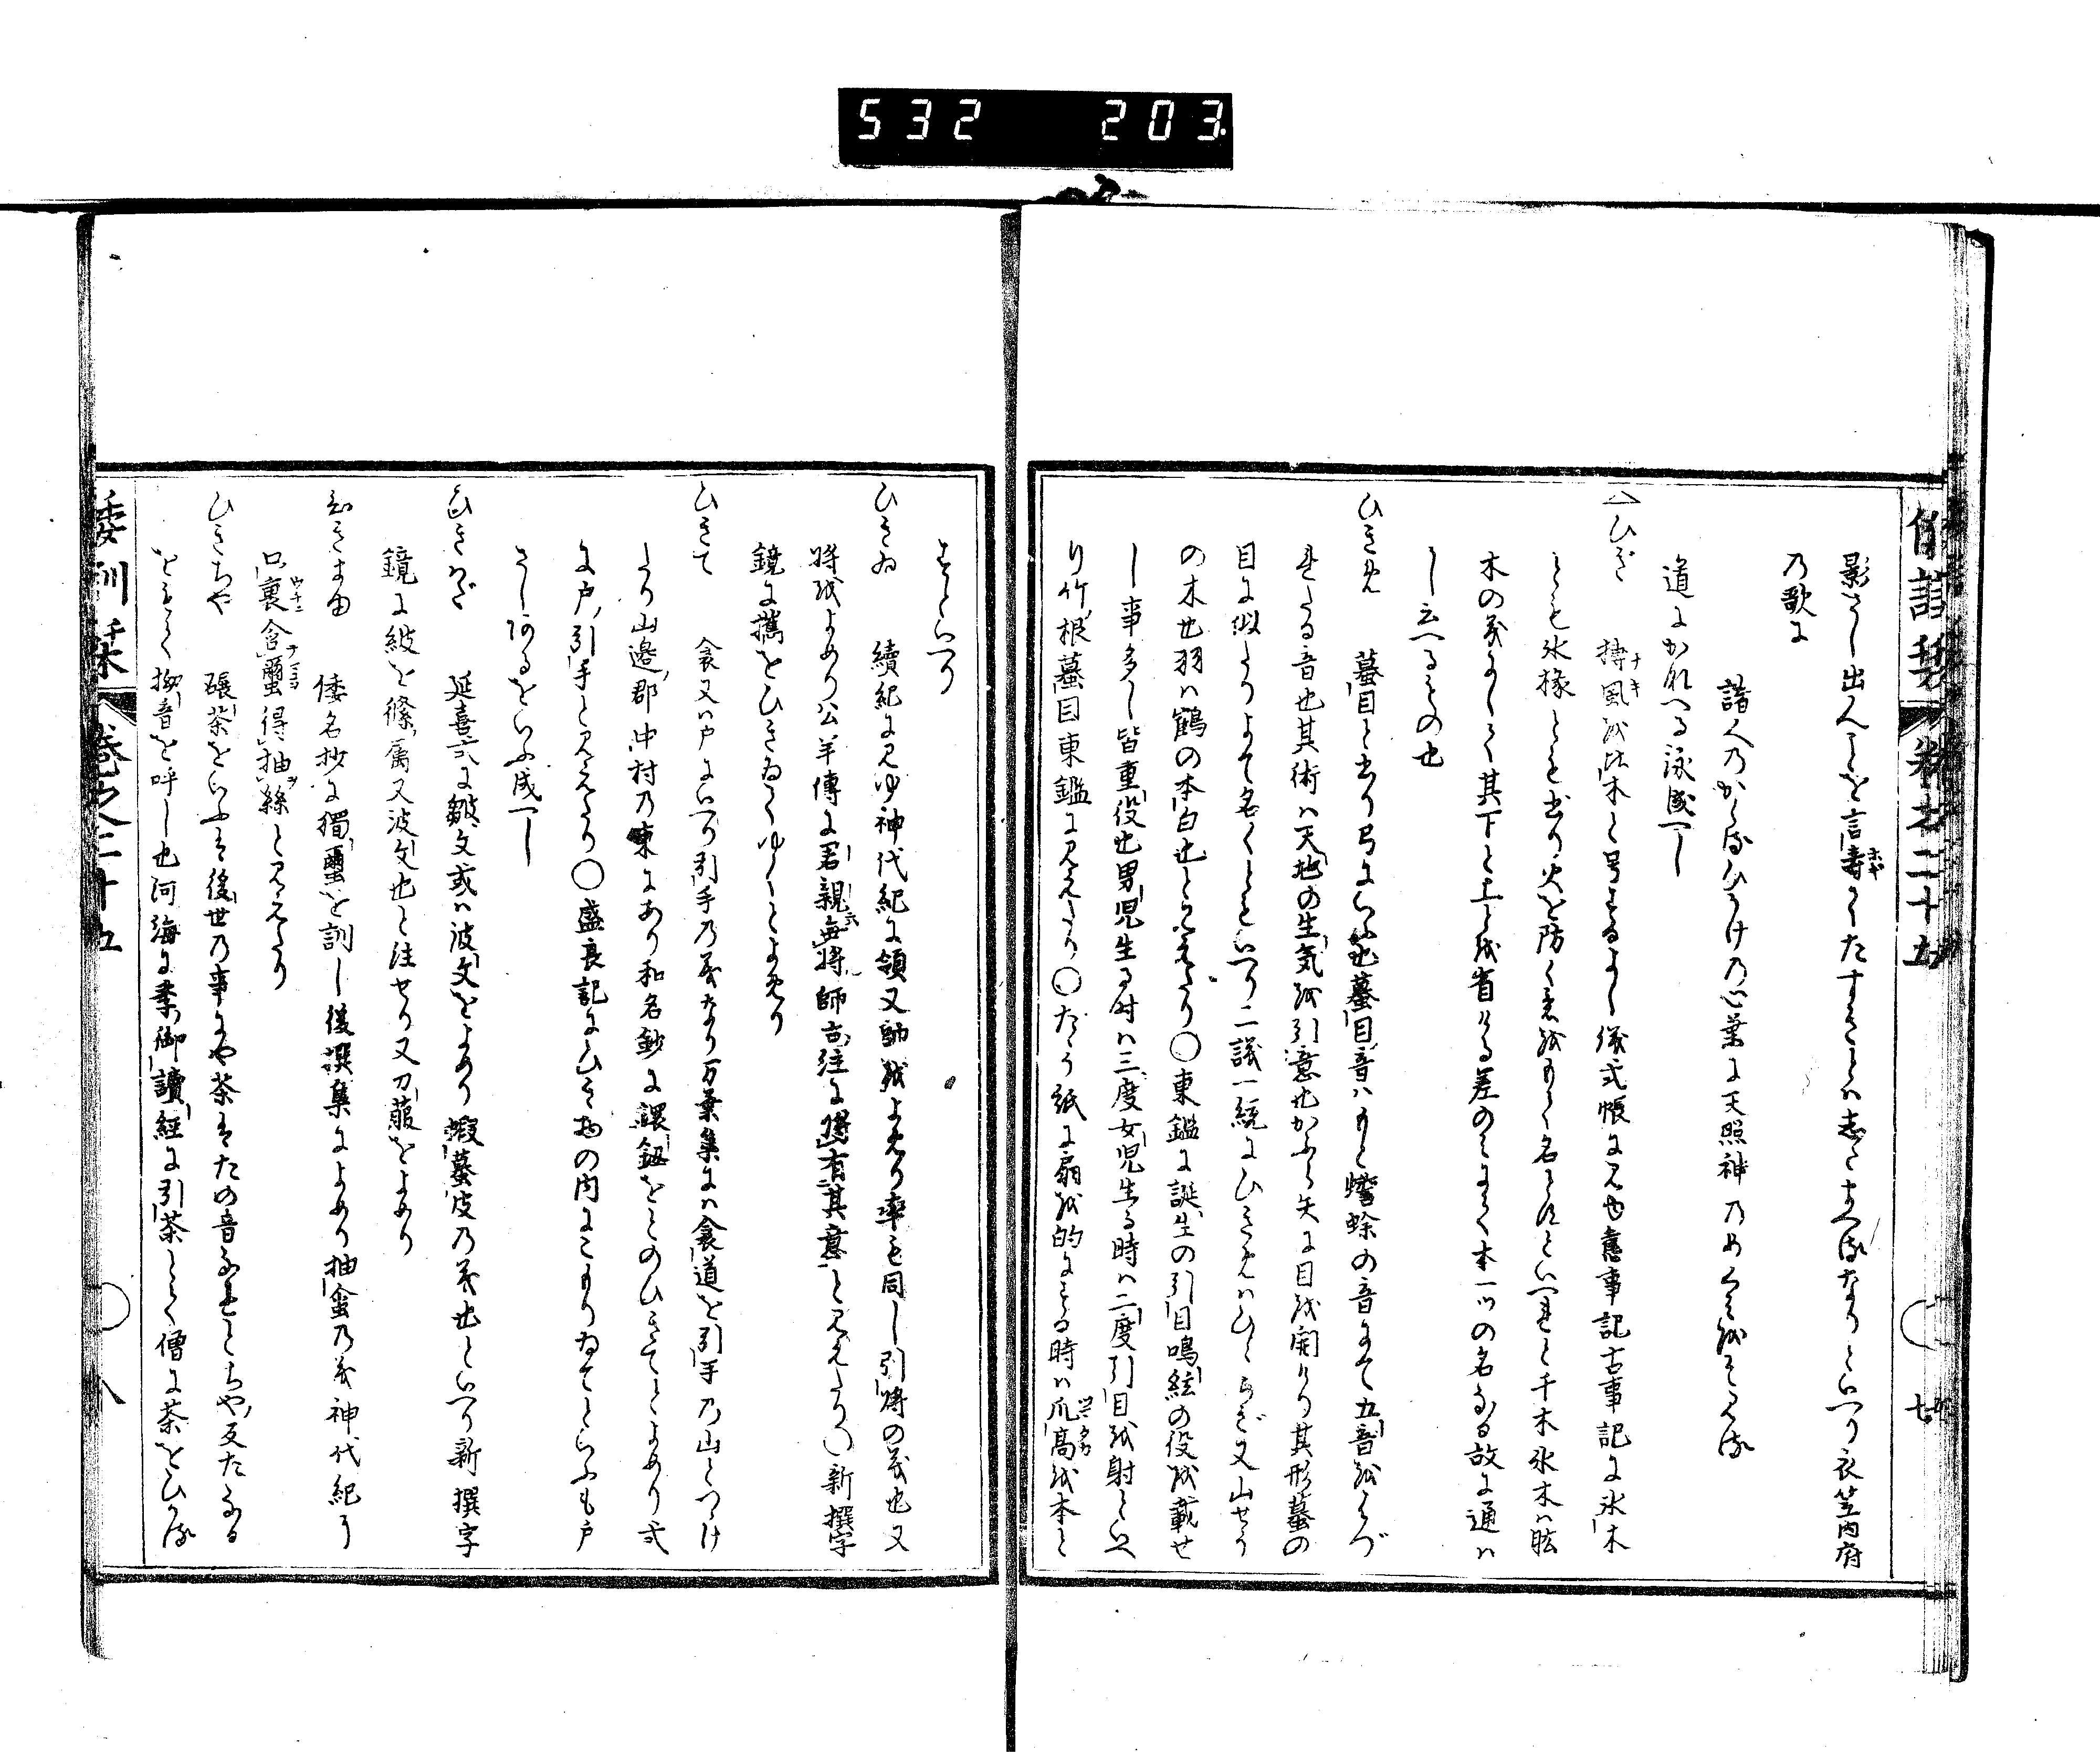 532 203
影さし出んことを言寿てたすきとハ志たまへるなりといへり衣笠内府
乃歌に
諸人乃かくるひかけ乃心葉に天照神乃めくみをそしる
道にかなへる詠成へし
ひぎ 搏風を比木と号するよし儀式帳に見ゆ旧事記古事記に氷木
とも氷椽とも書り火を防く意をもて名とすといへりと千木氷木ハ
木の義にして其下と上とを省ける差のみにて本一ツの名なる故に通ハ
し云へるもの也
ひきめ 蟇目と書り弓にいふ也蟇目の音ハもと蟾蜍の音にて五音をはづ
れたる音也其術ハ天地の生気を引意也かふら矢に目を開けり其形蟇の
目に似たりよて名くともいへり二議一統にひきめハひゝらぎ又山せう
の木也羽ハ鶴の本白也と見えたり〇東鑑に誕生の引目鳴絃の役を載せ
し事多し皆重役也男児生る時ハ三度女児生る時ハ二度引目を射といへ
り竹根蟇目東鑑に見えたり〇たゝう紙に扇を的にする時ハ爪高を本と
倭訓栞 巻之二十五 七
すといへり
ひきゐ 續紀に見ゆ神代紀に領又帥をよめり率も同し引將の義也又
將をよめり公羊傳に君親無將師古注に將有其意と見えたり〇新撰字
鏡に攜をひきゐてゆくとよめり
ひきて 衾又ハ戸にいへり引手乃義なり万葉集にハ衾道を引手乃山とつゝけ
たり山邊郡中村乃東にあり和名鈔に鐶鈕をとのひきてとよめり式
に戸引手と見えたり〇盛衰記にひき物の内にこもりゐてといふも戸
さしあるをいふ成へし
ひきはだ 延喜式に皺文或ハ波文をよめり蝦蟇皮乃義也といへり新撰字
鏡に紴を絛属又波文也と注せり又刀韜をよめり
ひきまゆ 倭名抄に獨繭を訓し後撰集によめり抽蚕乃義神代紀に
口裏含繭得抽絲と見えたり
ひきちや 碾茶をいふは後世乃事にや茶はたの音なれとちや反たなる
をもて拗音を呼し也河海に季御讀經に引茶とて僧に茶をひかる
倭訓栞 巻之二十五 八